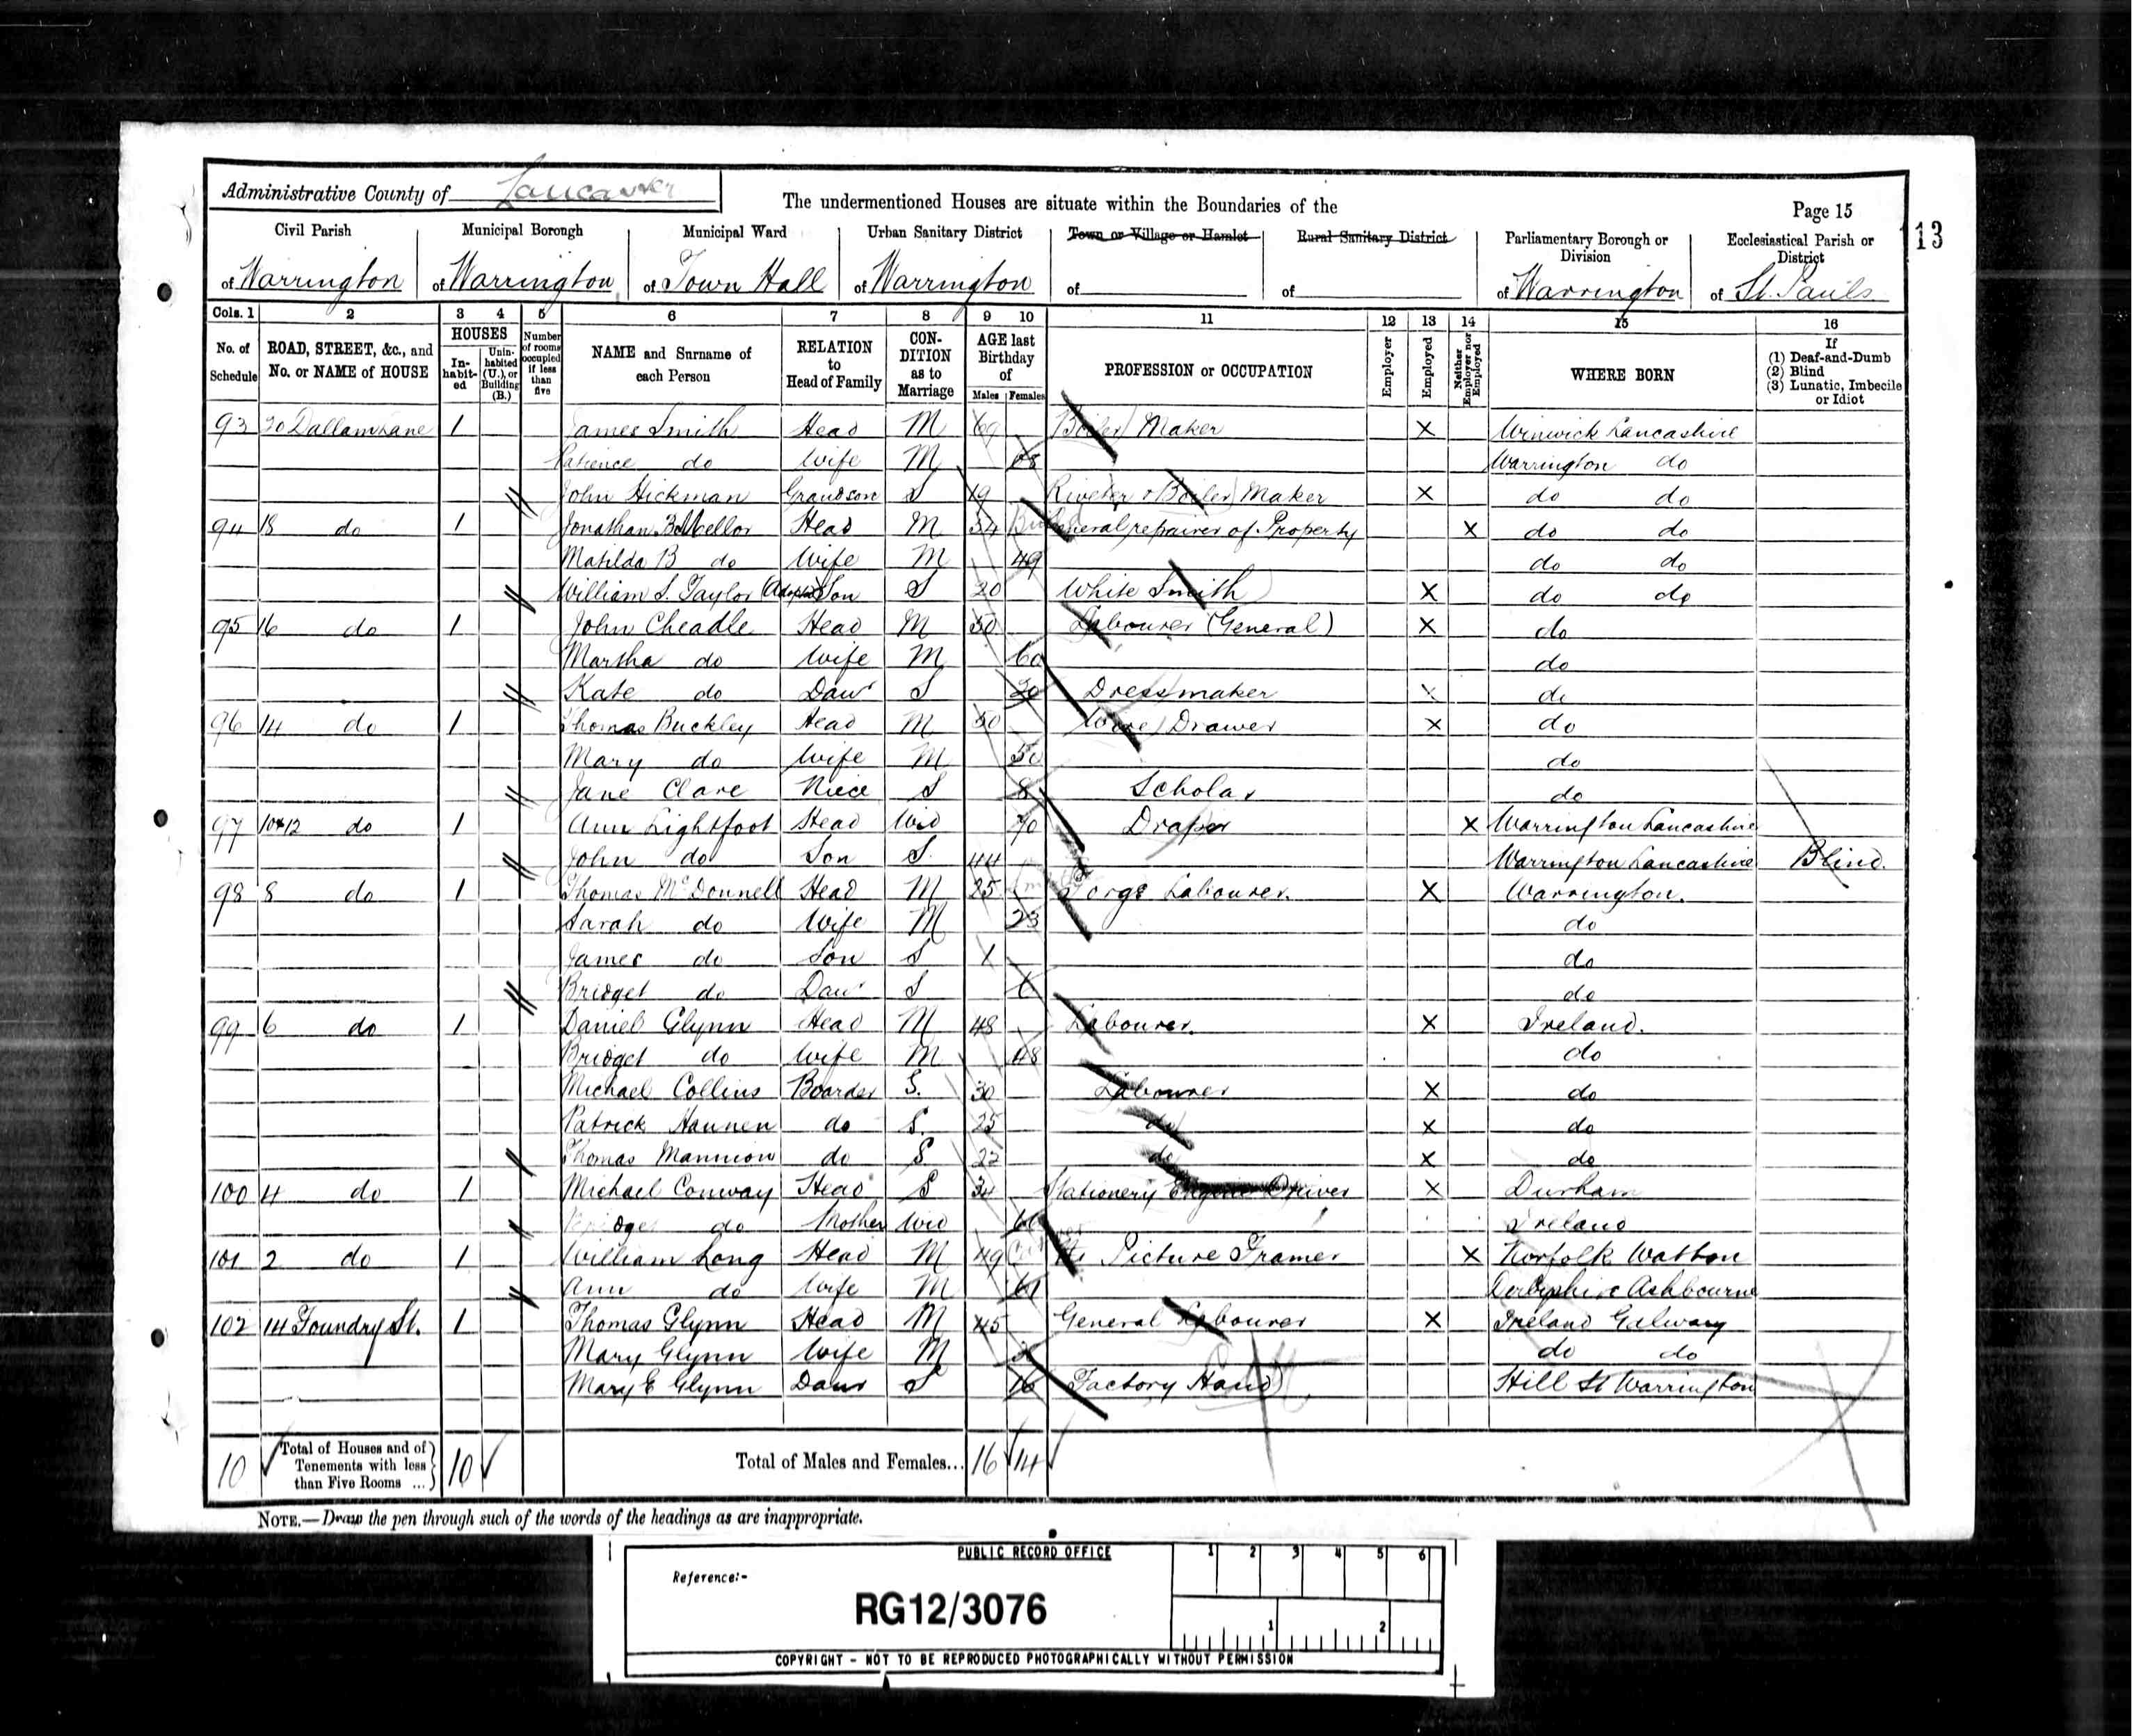 Administrative County of Lancaster
The undermentioned Houses are situate within the Boundaries of the
Page 15
13
Civil Parish Municipal Borough Municipal Ward Urban Sanitary District Town or Village or Hamlet Rural Sanitary District Parliamentary Borough or Division Ecclesiastical Parish or District
of Warrington of Warrington of Town Hall of Warrington of of of Warrington of St. Pauls
Cols. 1 2 3 4 5 6 7 8 9 10 11 12 13 14 15 16
No. of Schedule ROAD, STREET, &c., and No. or NAME of HOUSE HOUSES In-habit-ed Unin-habited (U.), or Building (B.) Number of rooms occupied if less than five NAME and Surname of each Person RELATION to Head of Family CON-DITION as to Marriage AGE last Birthday of Males Females PROFESSION or OCCUPATION Employer Employed Neither Employer nor Employed WHERE BORN If (1) Deaf-and-Dumb (2) Blind (3) Lunatic, Imbecile or Idiot
93 20 Dallam Lane 1 James Smith Head M 69 Boiler Maker X Winwick Lancashire
Patience do Wife M 68 Warrington do
John Hickman Grandson S 19 Riveter & Boiler Maker X do do
94 18 do 1 Jonathan B Mellor Head M 54 General repairer of Property X do do
Matilda B do Wife M 49 do do
William S. Taylor (Adopted Son S 20 White Smith X do do
95 16 do 1 John Cheadle Head M 50 Labourer (General) X do
Martha do Wife M 60 do
Kate do Daur S 20 Dressmaker X do
96 14 do 1 Thomas Buckley Head M 50 Wire Drawer X do
Mary do Wife M 50 do
Jane Clare Niece S 8 Scholar do
97 10&12 do 1 Ann Lightfoot Head Wid 70 Draper X Warrington Lancashire
John do Son S. 44 Warrington Lancashire Blind.
98 8 do 1 Thomas McDonnell Head M 25 Forge Labourer. X Warrington.
Sarah do Wife M 23 do
James do Son S 1 do
Bridget do Daur S do
99 6 do 1 Daniel Glynn Head M 48 Labourer. X Ireland.
Bridget do Wife M 48 do
Michael Collins Boarder S. 30 Labourer X do
Patrick Hannen do S. 25 do X do
Thomas Mannion do S 22 do X do
100 4 do 1 Michael Conway Head S 34 Stationery Engine Driver X Durham
Bridget do Mother Wid Ireland
101 2 do 1 William Long Head M 49 Picture Framer X Norfolk Watton
Ann do Wife M 61 Derbyshire Ashbourne
102 14 Foundry St. 1 Thomas Glynn Head M 45 General Labourer X Ireland Galway
Mary Glynn Wife M do do
Mary E Glynn Daur S 16 Factory Hand Hill St Warrington
10 Total of Houses and of Tenements with less than Five Rooms ... 10 Total of Males and Females... 16 14
NOTE.—Draw the pen through such of the words of the headings as are inappropriate.
PUBLIC RECORD OFFICE 1 2 3 4 5 6
Reference:-
RG12/3076
1 2
COPYRIGHT - NOT TO BE REPRODUCED PHOTOGRAPHICALLY WITHOUT PERMISSION